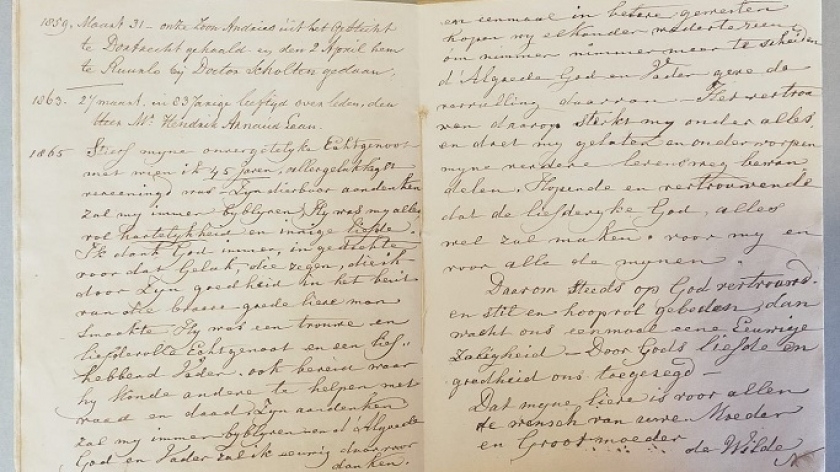 1859. Maart 31 – onze Zoon Andries uit het Gesticht
te Dordrecht gehaald en den 2 April hem
te Ruurlo bij Doctor Scholten gedaan,
1863. 27 maart, in 83 Jarige leeftyd overleden, den
Heer Mr. Hendrik Arnaud
1865 Stierf myne onvergetelyke Echtgenoot
met wien ik 45 Jaren, allergelukkigst
vereenigd was. Zyn dierbaar aandenken
zal my immer byblyven, Hy was my alles
vol hartelykheid en innige liefde.
Ik dank God immer, in gedachte
voor dat Geluk, die zegen, die ik
door Zyn goedheid in het bezit
van die brave goede lieve man
smaakte. Hy was een trouwe en
liefdevolle Echtgenoot en een lief-
hebbend Vader. ook bereid waar
hy konde andere te helpen met
raad en daad. Zyn aandenken
zal my immer byblyven en d'Algoede
God en Vader zal ik eeuwig daar voor
danken.
en eenmaal in betere gewesten
hopen wy elkander wederte zien,
om nimmer nimmermeer te scheiden
d'Algoede God en Vader geve de
vervulling daarvan – Het vertrou
wen daarop sterkt my onder alles
en doet my gelaten en onderworpen
myne verdere levensweg bewan
delen. Hopende en vertrouwende
dat de liefderyke God, alles
wel zal maken. voor my en
voor alle de mynen.
Daarom steeds op God vertrouwd.
en stil en hoopvol gebeden, dan
wacht ons eenmaal eene Eeuwige
Zaligheid – Door Gods liefde en
goedheid ons toegezegd –
Dat myne lieve is voor allen
de wensch van uwe Moeder
en Grootmoeder
de Wilde